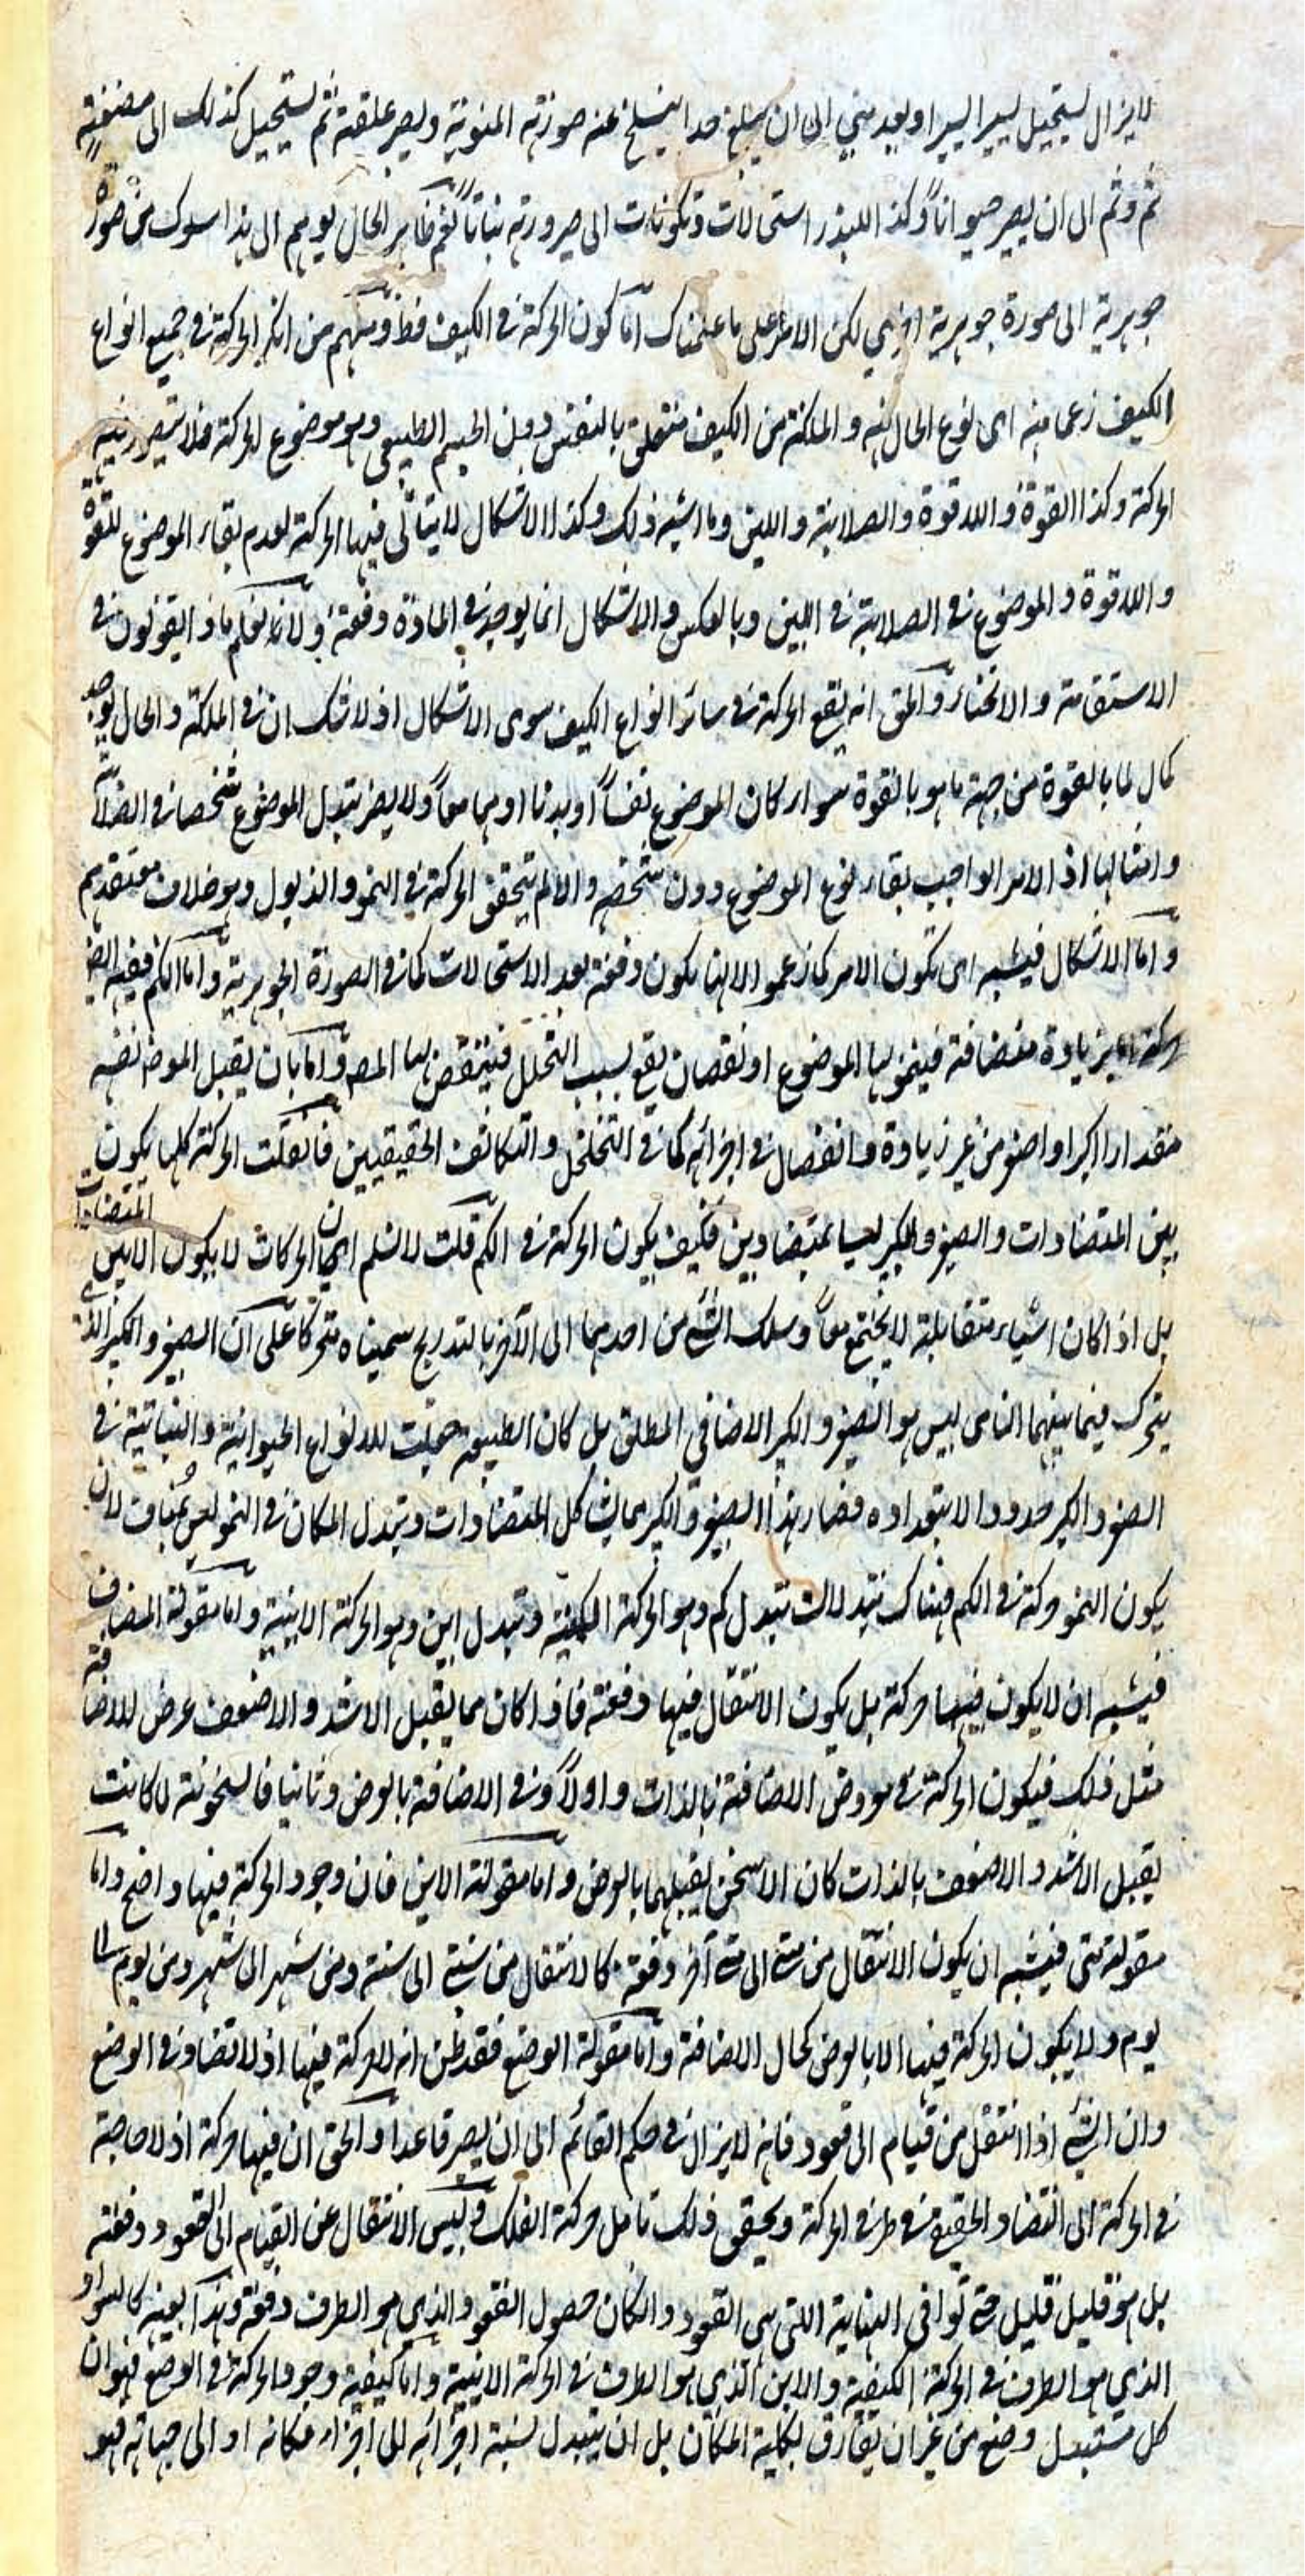 لايزال يستحيل يسيرا يسيرا وبعد مني الى ان يبلغ حدا ينسلخ عنه صورته المنوية ويصير علقة ثم يستحيل كذلك الى مضغة
ثم وثم الى ان يصير حيوانا وكذا للبذر استحالات وتكونات الى صيرورته نباتا نعم ظاهر الحال يوهم ان هذا سلوك من صورة
جوهرية الى صورة جوهرية اخرى لكن الامر على ما علمناك اما كون الحركة في الكيف فظ ومنهم من انكر الحركة في جميع انواع
الكيف زعما منه ان نوع الحال منه والملكة من الكيف متعلق بالنفس دون الجسم الطبيعي وهو موضوع الحركة فلا تصير فيه
الحركة وكذا القوة واللاقوة والصلابة واللين وما اشبه ذلك وكذا الاشكال لا يتأتى فيها الحركة لعدم بقاء الموضوع للقوة
واللاقوة والموضوع في الصلابة في اللين وبالعكس والاشكال انما يوجد في المادة دفعة ولانه نعلم ماذا يقولون في
الاستقامة والانحناء والحق انه يقع الحركة في سائر انواع الكيف سوى الاشكال اذ لا شك ان في الملكة والحال يوجد
كمال لما بالقوة من جهة ما هو بالقوة سواء كان الموضوع نفسا او بدنا او هما معا ولا يضر تبدل الموضوع شخصا في الصلابة
وامثالها اذ الامر الواجب بقاء نوع الموضوع دون شخصه والا لم يتحقق الحركة في النمو والذبول وهو خلاف معتقدهم
واما الاشكال فيشبه ان يكون الامر كما زعمو الا انها يكون دفعة بعد الاستحالات كما في الصورة الجوهرية واما الكم ففيه ايض
حركة اما بزيادة منضافة فينمو بها الموضوع او نقصان يقع بسبب التحلل فينتقص بها الموض واما بان يقبل الموض نفسه
مقدارا اكبر او اصغر من غير زيادة وانفصال في اجزائه كما في التخلخل والتكاثف الحقيقيين فان قلت الحركة كلها يكون
بين المتضادات والصغير والكبير ليسا بمتضادين فكيف يكون الحركة في الكم قلت لا نسلم ان الحركات لا يكون الا بين المتضادات
بل اذا كان اشياء متقابلة لا يجتمع معا وسلك الشئ من احدهما الى الآخر بالتدريج سميناه متحركا على ان الصغير والكبير الذي
يتحرك فيما بينهما النامى ليس هو الصغير والكبير الاضافى المطلق بل كان الطبيعة جعلت للانواع الحيوانية والنباتية في
الصغر والكبر حدودا لا يتعداه فصار هذا الصغير والكبير يشاكل المتضادات وتبدل المكان في النمو ليس بمناف لان
يكون النمو حركة في الكم فهناك تبدلات تبدل كم وهو الحركة الكمية وتبدل اين وهو الحركة الاينية واما مقولة المضاف
فيشبه ان لا يكون فيها حركة بل يكون الانتقال فيها دفعة فاذا كان مما يقبل الاشد والاضعف عرض للاضافة
مثل ذلك فيكون الحركة في معروض الاضافة بالذات واولا وفي الاضافة بالعرض وثانيا فالسخونة لما كانت
يقبل الاشد والاضعف بالذات كان الاسخن يقبلهما بالعرض واما مقولة الاين فان وجود الحركة فيها واضح واما
مقولة متى فيشبه ان يكون الانتقال من متى الى متى آخر دفعة كالانتقال من سنة الى سنة ومن شهر الى شهر ومن يوم الى
يوم ولا يكون الحركة فيها الا بالعرض كحال الاضافة واما مقولة الوضع فقد ظن انه لا حركة فيها اذ لا تضاد في الوضع
وان الشئ اذا انتقل من قيام الى قعود فانه لا يزال في حكم القائم الى ان يصير قاعدا والحق ان فيها حركة اذ لا حاجة
في الحركة الى التضاد الحقيقي في طرفي الحركة وبحقق ذلك تامل حركة الفلك وليس الانتقال عن القيام الى القعود دفعة
بل هو قليل قليل حتى توافى النهاية التي هي القعود والكان حصول القعود الذي هو الطرف دفعة وهذا بعينه كالسواد
الذي هو الطرف في الحركة الكيفية والاين الذي هو الطرف في الحركة الاينية واما كيفية وجود الحركة في الوضع فهو ان
كل مستبدل وضع من غير ان يفارق بكلية المكان بل ان يتبدل نسبة اجزائه الى اجزاء مكانه او الى جهاته فهو